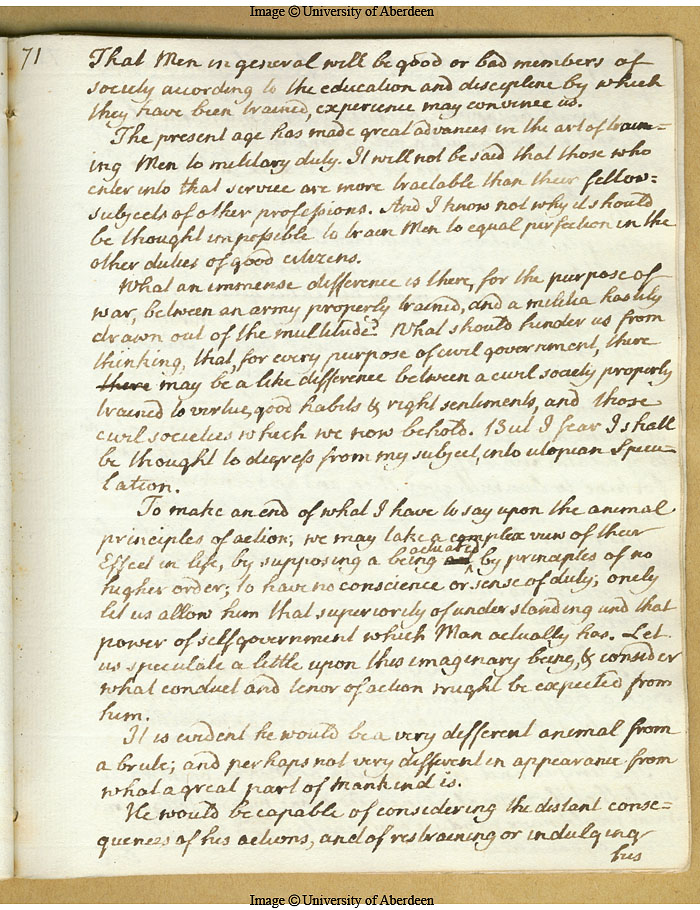 Image © University of Aberdeen
71
That Men in general will be good or bad members of
society according to the education and discipline by which
they have been trained, experience may convince us.
The present age has made great advances in the art of train=
ing Men to military duty. It will not be said that those who
enter into that service are more tractable than their fellow=
subjects of other professions. And I know not why it should
be thought impossible to train Men to equal perfection in the
other duties of good citizens.
What an immense difference is there, for the purpose of
war, between an army properly trained, and a militia hastily
drawn out of the multitude? What should hinder us from
thinking, that, for every purpose of civil government, there
there may be a like difference between a civil society properly
trained to virtue, good habits & right sentiments, and those
civil societies which we now behold. But I fear I shall
be thought to degress from my subject, into utopian Specu=
lation.
To make an end of what I have to say upon the animal
principles of action; we may take a complex view of their
actuated
Effect in life, by supposing a being by principles of no
higher order; to have no conscience or sense of duty; onely
let us allow him that superiority of understanding and that
power of selfgovernment which Man actually has. Let
us speculate a little upon this imaginary being, & consider
what conduct and tenor of action might be expected from
him.
It is evident he would be a very different animal from
a brute; and perhaps not very different in appearance from
what a great part of Mankind is.
He would be capable of considering the distant conse=
quences of his actions, and of restraining or indulging
his
Image © University of Aberdeen